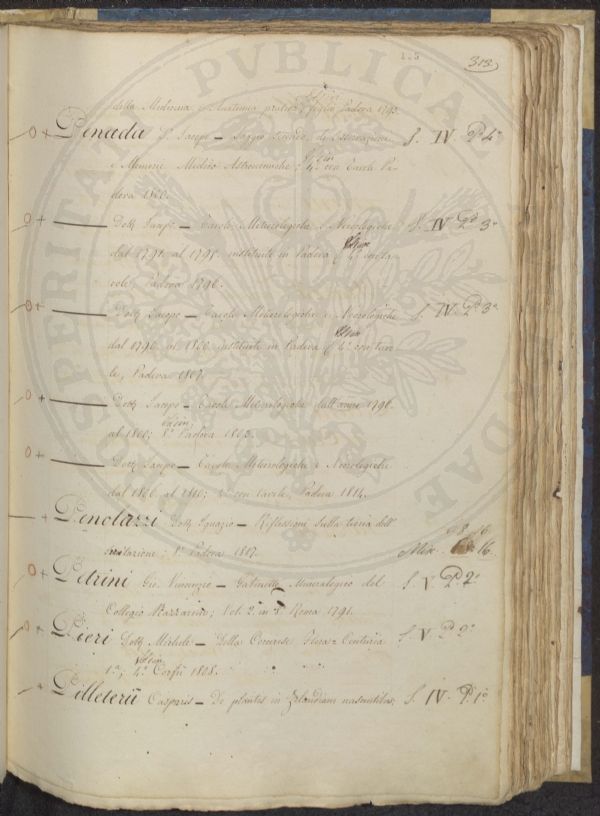 1.5 313.
della Medicina, e Anatomia pratica; foglio Padova 1793.
Penada D. Jacopo — Saggio Secondo di Osservazioni S. IV P.4
e Memorie Medico Astronomiche; 4° con Tavole Pa-
dova 1800.
Dott. Jacopo — Tavole Meteorologiche e Nosologiche S. IV P. 3
dal 1791. al 1795. instituite in Padova 4° con ta-
vole, Padova 1796.
Dott. Jacopo — Tavole Meteorologiche e Nosologiche S. IV P. 3
dal 1796. al 1800. instituite in Padova 4° con tavo-
le, Padova 1807.
Dott. Jacopo — Tavole Meteorologiche dall'anno 1796.
al 1800; 8° Padova 1803.
Dott. Jacopo — Tavole Meteorologiche e Nosologiche
dal 1806. al 1810; 4° con tavole, Padova 1814.
Penolazzi Dott. Ignazio — Riflessioni sulla teoria dell'
irritazione; 8° Padova 1817. Misc. 16.
Petrini Gio. Vincenzo — Gabinetto Mineralogico del S. V P. 2
Collegio Nazzareno; Vol. 2. in 8° Roma 1791.
Pieri Dott. Michele — Della Corcirese Flora Centuria S. V P. 2
1ª; 4° Corfù 1808.
Pilleterii Casparis — De plantis in Zelandiam nascentibus; S. IV P. 1
PROSPERITATI PVBLICAE